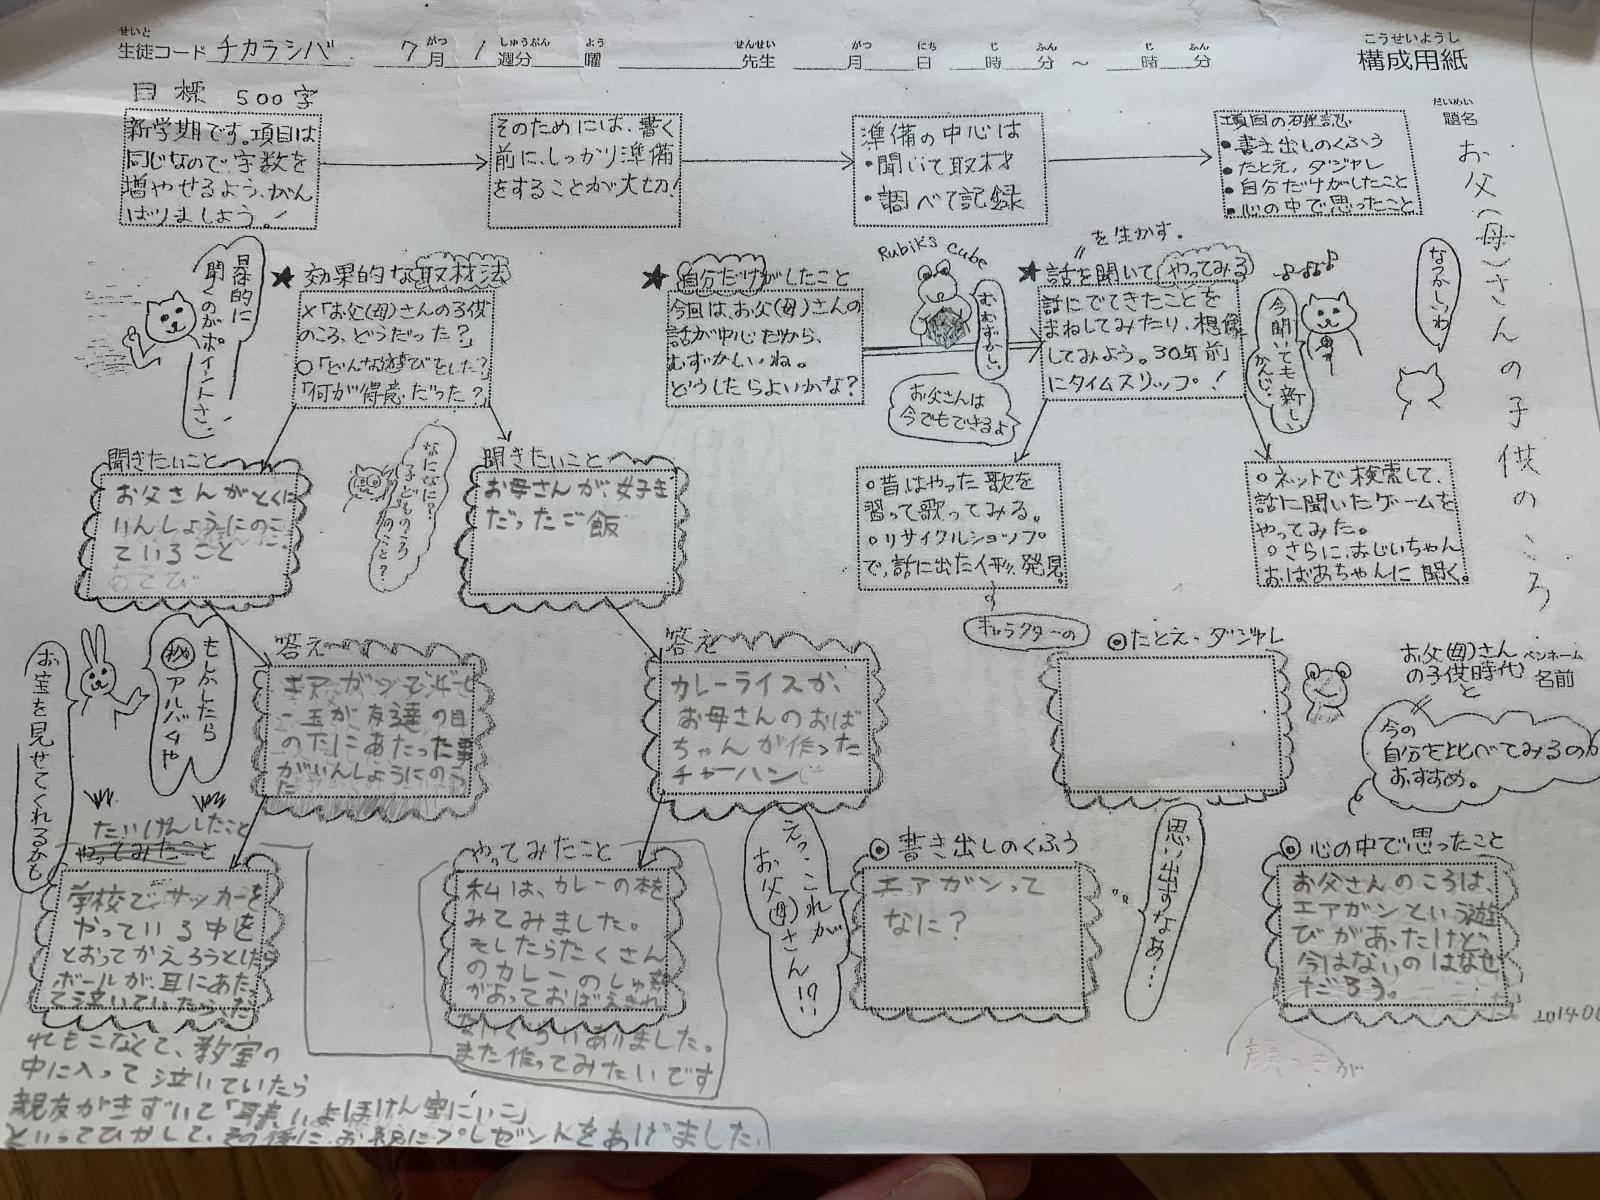 せいと
生徒コード チカラシバ 7月 1週分 曜 先生 月 日 時 分 〜 時 分
がつ しゅうぶん よう せんせい がつ にち じ ふん じ ふん
こうせいようし
構成用紙
だいめい
題名
お父(母)さんの子供のころ
目標 500字
新学期です。項目は
同じなので、字数を
増やせるよう、がん
ばりましょう。!
そのためには、書く
前に、しっかり準備
をすることが大切!
準備の中心は
・聞いて取材
・調べて記録
項目の確認
・書き出しのくふう
・たとえ、ダジャレ
・自分だけがしたこと
・心の中で思ったこと
具体的に
聞くのがポイントさ、
★効果的な取材法
×「お父(母)さんの子供
のころ、どうだった?」
○「どんな遊びをした?」
「何が得意だった?」
★自分だけがしたこと
今回は、お父(母)さんの
話が中心だから、
むずかしいね。
どうしたらよいかな?
Rubik's Cube
むむずかしい
お父さんは
今でもできるよ
〃を生かす。
★話を聞いてやってみる
話にでてきたことを
まねしてみたり、想像
してみよう。30年前
にタイムスリップ!
今聞いても新しい
かんじ。
なつかしいわ
聞きたいこと
お父さんがとくに
いんしょうにのこっ
ていること
あそび
なになに?
子どものころ
のこと?
聞きたいこと
お母さんが、好き
だったご飯
○昔はやった歌を
習って歌ってみる。
○リサイクルショップ
で、話に出た人形、発見。
キャラクターの
○ネットで検索して、
話に聞いたゲームを
やってみた。
○さらに、おじいちゃん
おばあちゃんに聞く。
お宝を見せてくれるかも
もしかしたら
㊙アルバムや
答え
エアガンで
一玉が友達の目
の下にあたった事
がいんしょうにのこっ
た
答え
カレーライスか、
お母さんのおば
ちゃんが作った
チャーハン
◉たとえ・ダジャレ
お父(母)さん
の子供時代と
ペンネーム
名前
今の
自分を比べてみるのも
おすすめ。
たいけんしたこと
やってみたこと
学校で、サッカーを
やっている中を
とおってかえろうとしたら
ボールが、耳にあたっ
て泣いていたらだ
れもこなくて、教室の
中に入って泣いていたら
親友がきずいて「
ほけん室にいこ」
といって
プレゼントをあげました。
やってみたこと
私は、カレーの本を
みてみました。
そしたらたくさん
のカレーのしゅ類
があっておぼえきれ
ないくらいありました。
また作ってみたいです
えっ、これが
お父(母)さん!?
◉書き出しのくふう
エアガンって
なに?
思い出すなあ…
◉心の中で思ったこと
お父さんのころは、
エアガンという遊
びがあったけど、
今はないのはなぜ
だろう。
顔つきが